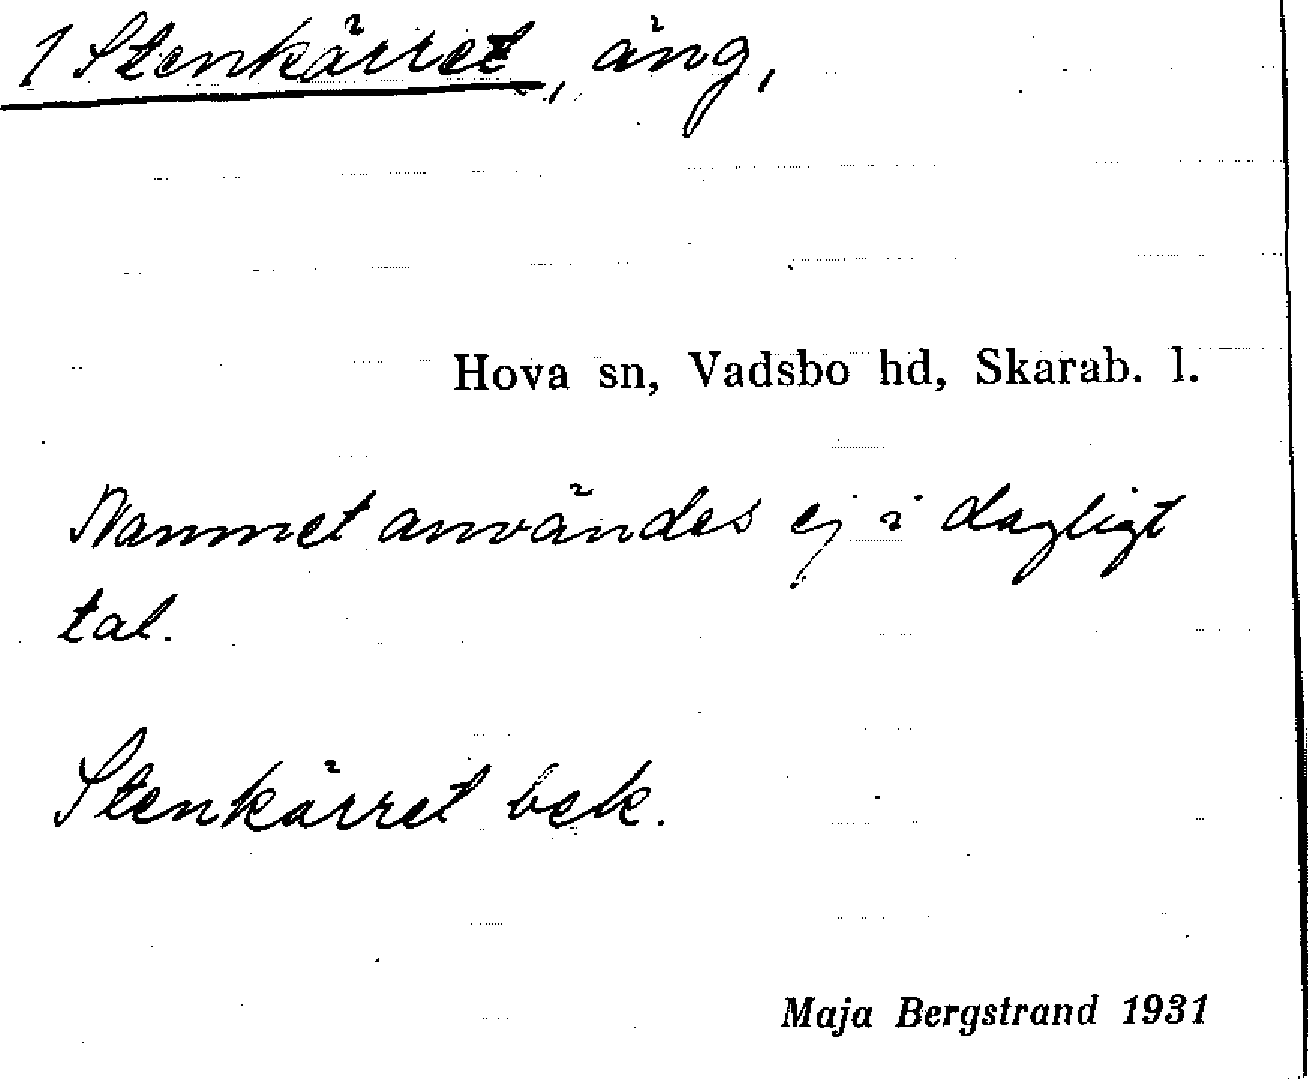 1 Stenkärret, äng,
Hova sn, Vadsbo hd, Skarab. l.
Namnet användes ej i dagligt
tal.
Stenkärret bek.
Maja Bergstrand 1931